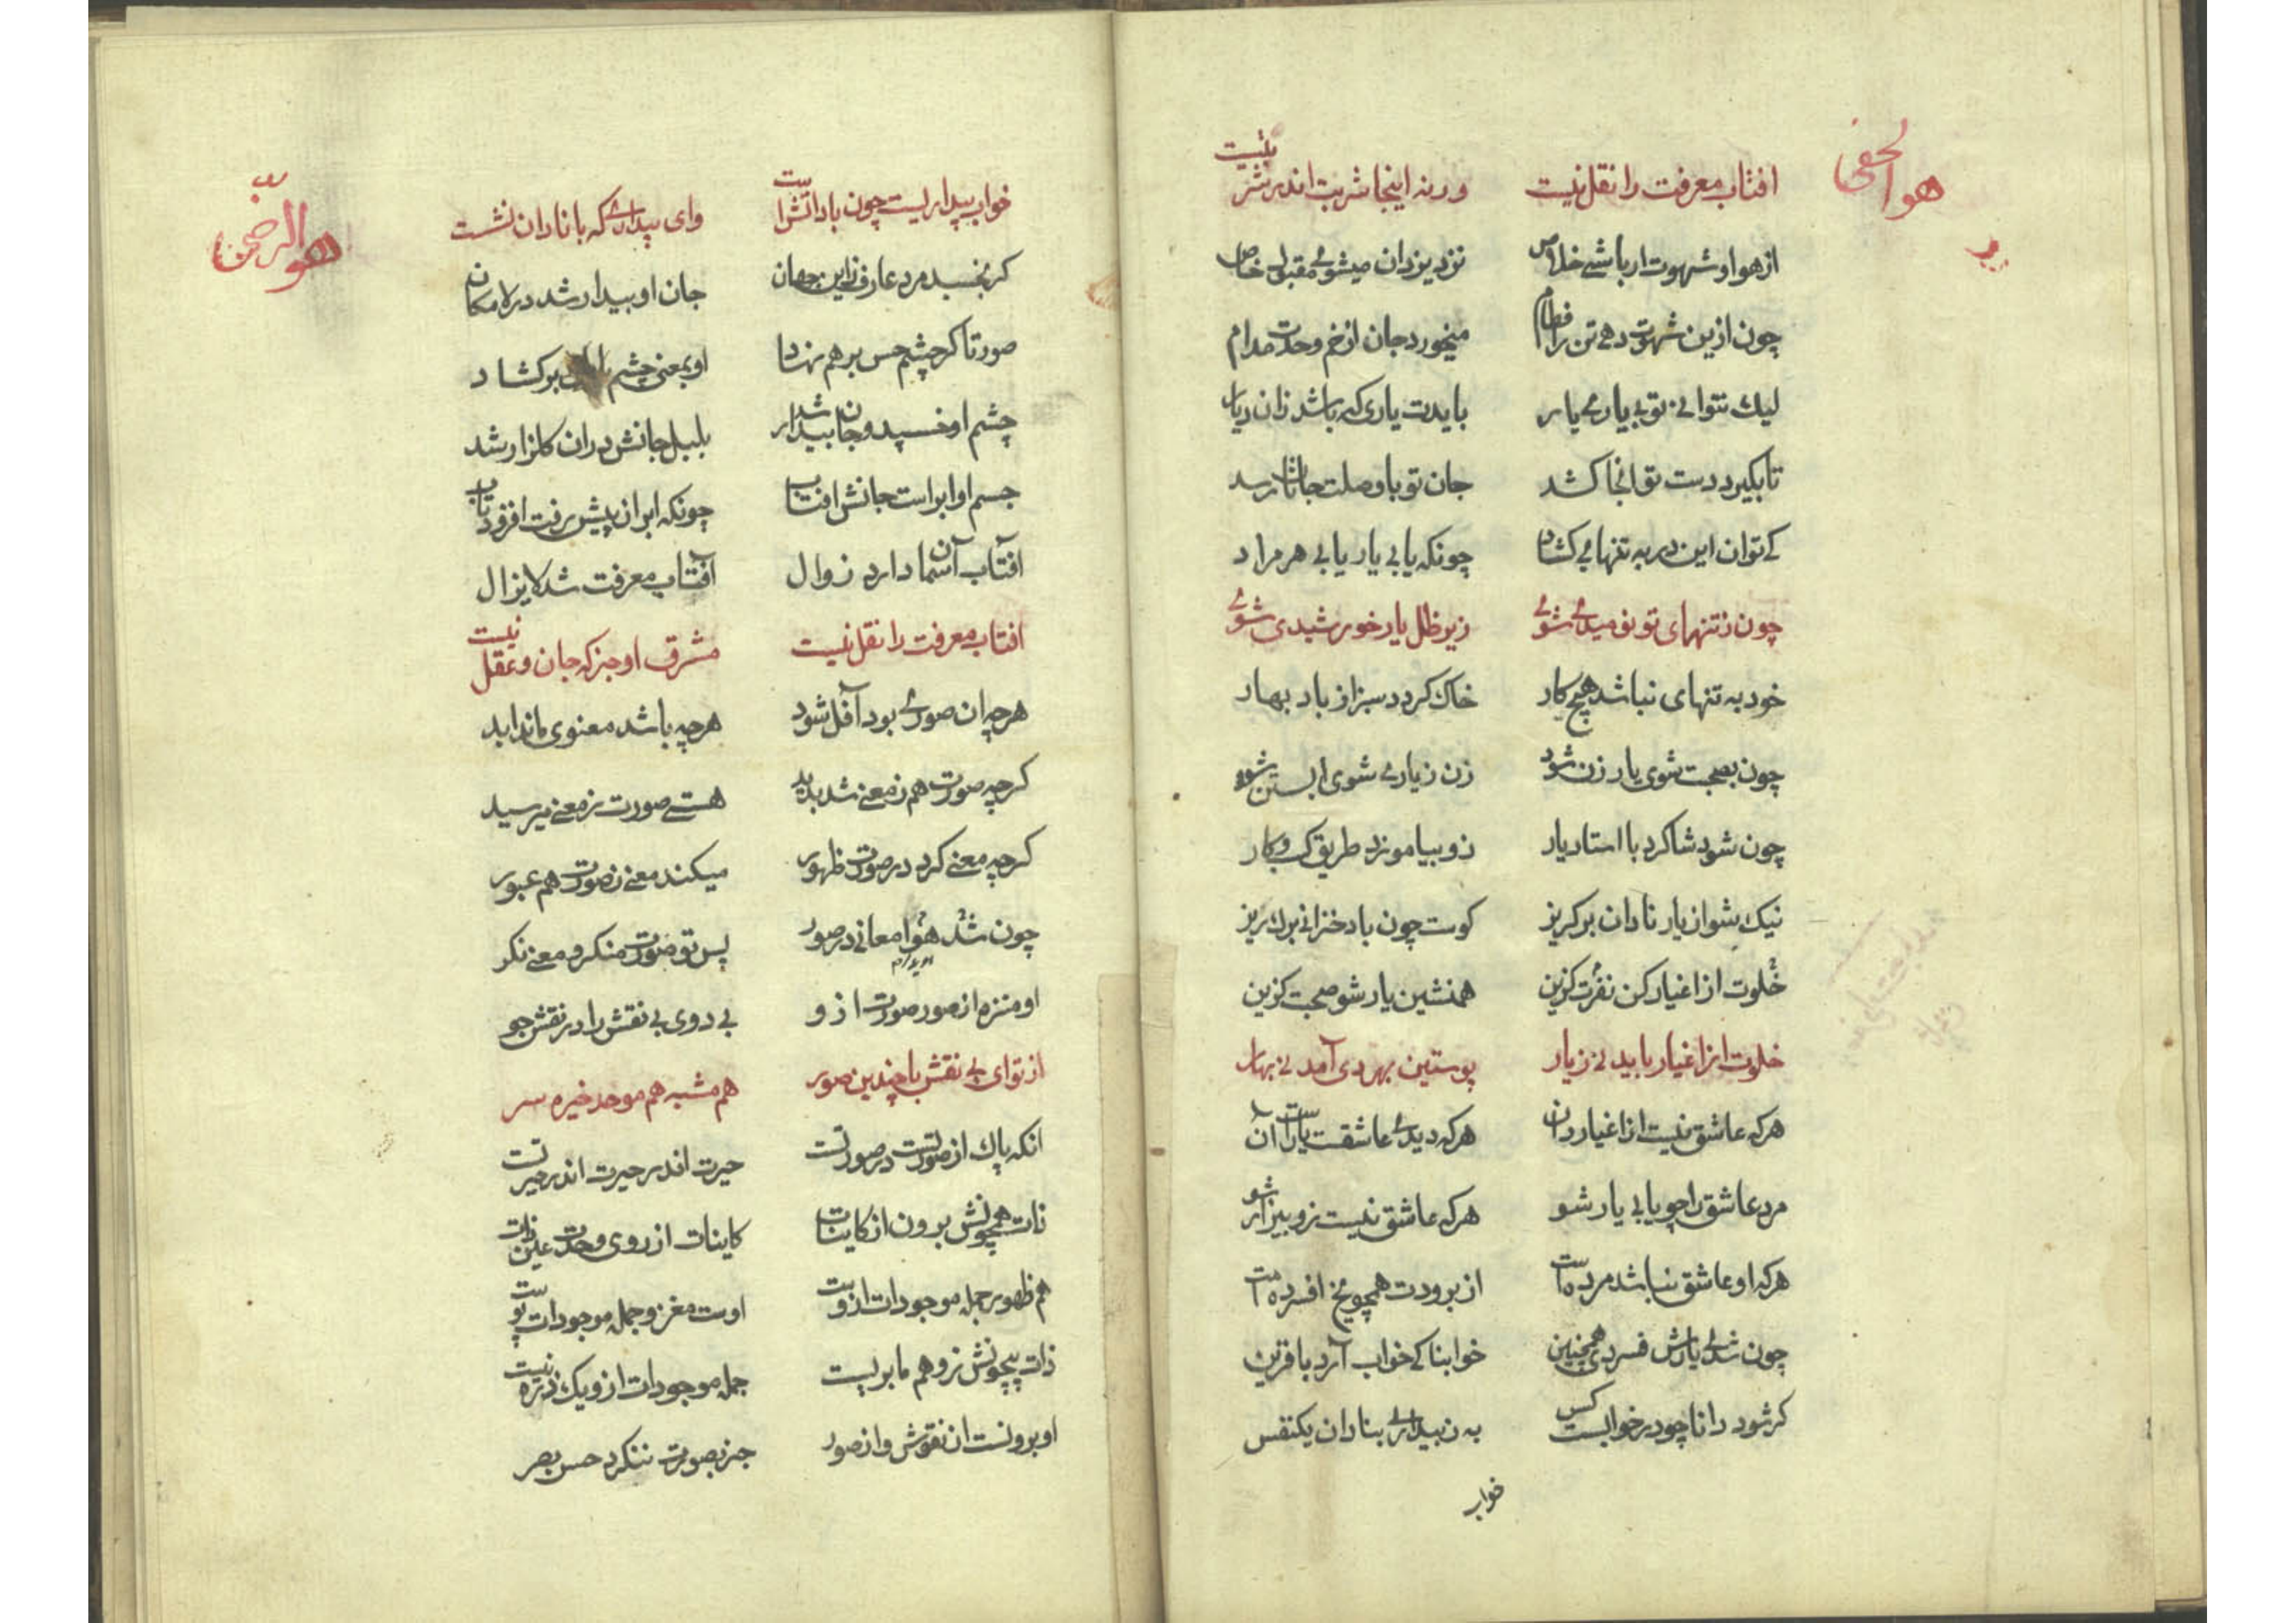 هو الخفی
افتاب معرفت را نقل نیست ورنه اینجا شربت اندر شربتیست
از هوا و شهوت ار باشی خلاص نزد یزدان میشوی مقبول خاص
چون ازین شهوت دهی تن را فطام میخورد جان از خم وحدت مدام
لیك نتوانی تو بی یاری یار بایدت یاری که باشد زان دیار
تا بگیرد دست تو انجا کشد جان تو با وصلت جانان رسد
کی توان این در به تنهایی کشاد چونکه یابی یار یابی هر مراد
چون ز تنهای تو نومیدی شوی زیر ظل یار خورشیدی شوی
خود به تنهای نباشد هیچ کار خاك کردد سبز از باد بهار
چون بصحبت شوی یار زن شود زن ز یاری شوی ابستن شود
چون شود شاکرد با استاد یار زو بیاموزد طریق کسب و کار
نیك بشنو از یار نادان بر کریز کوست چون باد خزانی برك ریز
خلوت از اغیار کن نفرت کزین همنشین یار شو صحبت کزین
خلوت از اغیار باید نی ز یار پوستین بهر دی آمد نی بهار
هرکه عاشق نیست از اغیار دان هرکه دیدی عاشقت یارست آن
مرد عاشق را چو یابی یار شو هرکه عاشق نیست زو بیزار شو
هرکه او عاشق نباشد مرده است از برودت همچو یخ افسرده است
چون شدی یارش فسردی همچنین خوابناکی خواب آرد با قرین
کر شود دانا چو در خوابست کس به ز بیداری بنادان یکنفس
خواب
هو الرحمن
خواب بیداریست چون با دانشست وای بیداری که با نادان نشست
کر بخسبد مرد عارف زاین جهان جان او بیدار شد در لامکان
صورتا کر چشم حس بر هم نهاد او بمعنی چشم بر کشاد
چشم او خسپید و جان بیدار شد بلبل جانش دران کلزار شد
جسم او ابر است جانش افتاب چونکه ابر از پیش رفت افزود تاب
افتاب آسمان دارد زوال آفتاب معرفت شد لایزال
افتاب معرفت را نقل نیست مشرق او جز که جان و عقل نیست
هرچه ان صوری بود آفل شود هرچه باشد معنوی ماند ابد
کرچه صورت هم ز معنی شد پدید هستی صورت ز معنی میرسید
کرچه معنی کرد در صورت ظهور میکند معنی ز صورت هم عبور
چون شد هوا معانی در صور پس تو صورت منکر و معنی نکر
او منزه از صور صورت ازو بی دوی بی نقش را در نقش جو
از تو ای بی نقش با چندین صور هم مشبه هم موحد خیره سر
انکه پاك از صورتست در صورتست حیرت اندر حیرت اندر حیرتست
ذات همچونش برون از کاینات کاینات از روی وحدت عین ذات
هم ظهور جمله موجودات ازوست اوست مغز و جمله موجودات پوست
ذات بیچونش ز وهم ما بریست جمله موجودات ازو یك ذره نیست
او برونست از نقوش و از صور جز بصورت ننکرد حس بصر